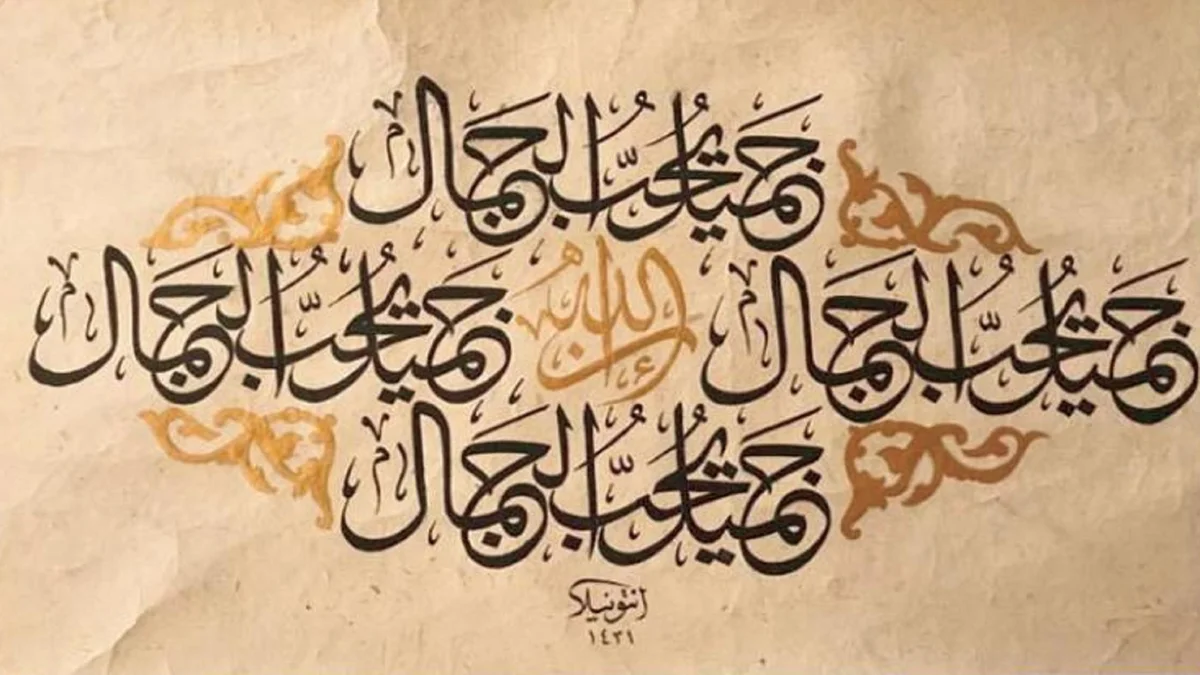 جميل يُحبُّ الجمال
جميل يُحبُّ الجمال إن الله جميل يُحبُّ الجمال
جميل يُحبُّ الجمال
انتونيلا
١٤٣١